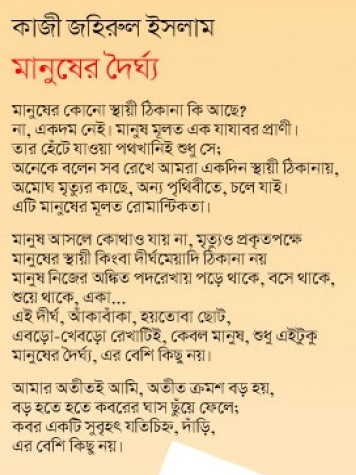 কাজী জহিরুল ইসলাম
মানুষের দৈর্ঘ্য
মানুষের কোনো স্থায়ী ঠিকানা কি আছে?
না, একদম নেই। মানুষ মূলত এক যাযাবর প্রাণী।
তার হেঁটে যাওয়া পথখানিই শুধু সে;
অনেকে বলেন সব রেখে আমরা একদিন স্থায়ী ঠিকানায়,
অমোঘ মৃত্যুর কাছে, অন্য পৃথিবীতে, চলে যাই।
এটি মানুষের মূলত রোমান্টিকতা।
মানুষ আসলে কোথাও যায় না, মৃত্যুও প্রকৃতপক্ষে
মানুষের স্থায়ী কিংবা দীর্ঘমেয়াদি ঠিকানা নয়
মানুষ নিজের অঙ্কিত পদরেখায় পড়ে থাকে, বসে থাকে,
শুয়ে থাকে, একা...
এই দীর্ঘ, আঁকাবাঁকা, হয়তোবা ছোট,
এবড়ো-খেবড়ো রেখাটিই, কেবল মানুষ, শুধু এইটুকু
মানুষের দৈর্ঘ্য, এর বেশি কিছু নয়।
আমার অতীতই আমি, অতীত ক্রমশ বড় হয়,
বড় হতে হতে কবরের ঘাস ছুঁয়ে ফেলে;
কবর একটি সুবৃহৎ যতিচিহ্ন, দাঁড়ি,
এর বেশি কিছু নয়।